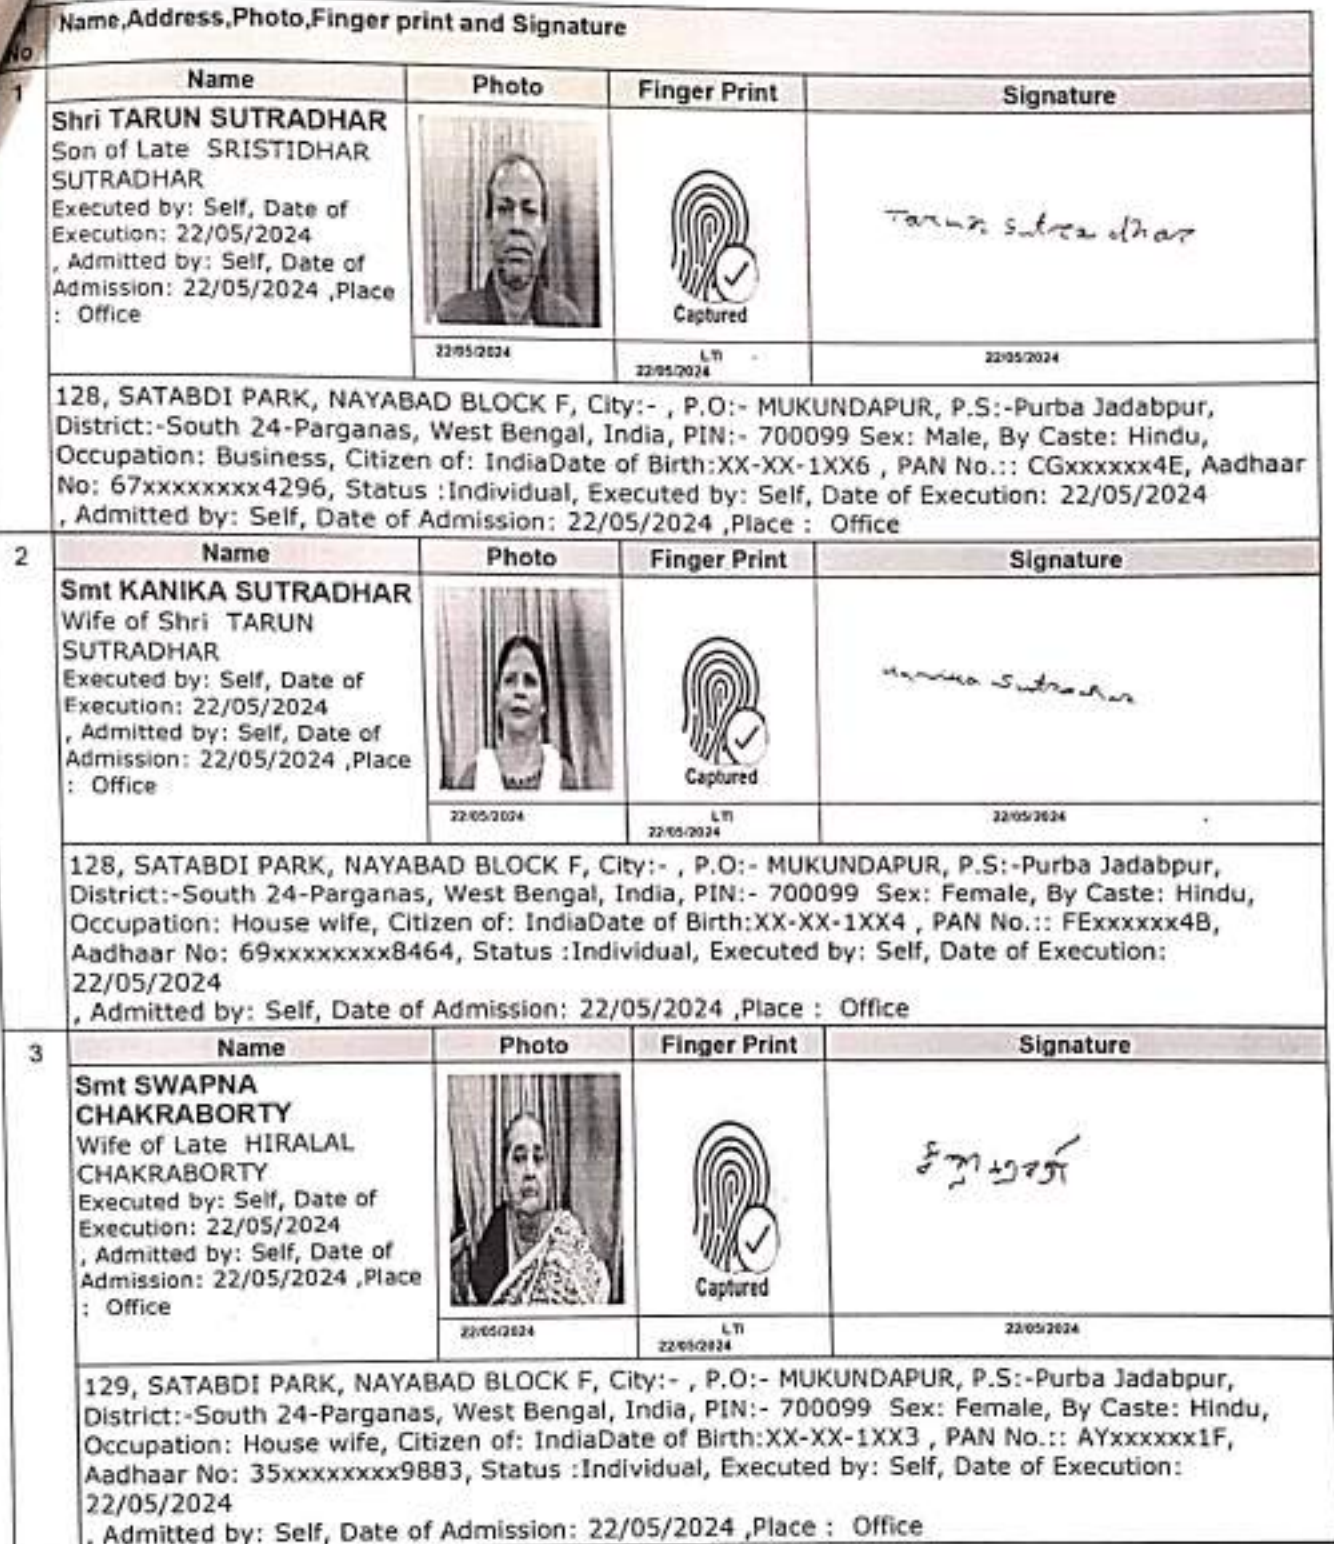 No
Name,Address,Photo,Finger print and Signature
1
Name
Photo
Finger Print
Signature
Shri TARUN SUTRADHAR
Son of Late SRISTIDHAR
SUTRADHAR
Executed by: Self, Date of
Execution: 22/05/2024
, Admitted by: Self, Date of
Admission: 22/05/2024 ,Place
: Office
Captured
Tarun Sutradhar
22/05/2024
LTI
22/05/2024
22/05/2024
128, SATABDI PARK, NAYABAD BLOCK F, City:- , P.O:- MUKUNDAPUR, P.S:-Purba Jadabpur,
District:-South 24-Parganas, West Bengal, India, PIN:- 700099 Sex: Male, By Caste: Hindu,
Occupation: Business, Citizen of: IndiaDate of Birth:XX-XX-1XX6 , PAN No.:: CGxxxxxx4E, Aadhaar
No: 67xxxxxxxx4296, Status :Individual, Executed by: Self, Date of Execution: 22/05/2024
, Admitted by: Self, Date of Admission: 22/05/2024 ,Place : Office
2
Name
Photo
Finger Print
Signature
Smt KANIKA SUTRADHAR
Wife of Shri TARUN
SUTRADHAR
Executed by: Self, Date of
Execution: 22/05/2024
, Admitted by: Self, Date of
Admission: 22/05/2024 ,Place
: Office
Captured
Kanika Sutradhar
22/05/2024
LTI
22/05/2024
22/05/2024
128, SATABDI PARK, NAYABAD BLOCK F, City:- , P.O:- MUKUNDAPUR, P.S:-Purba Jadabpur,
District:-South 24-Parganas, West Bengal, India, PIN:- 700099 Sex: Female, By Caste: Hindu,
Occupation: House wife, Citizen of: IndiaDate of Birth:XX-XX-1XX4 , PAN No.:: FExxxxxx4B,
Aadhaar No: 69xxxxxxxx8464, Status :Individual, Executed by: Self, Date of Execution:
22/05/2024
, Admitted by: Self, Date of Admission: 22/05/2024 ,Place : Office
3
Name
Photo
Finger Print
Signature
Smt SWAPNA
CHAKRABORTY
Wife of Late HIRALAL
CHAKRABORTY
Executed by: Self, Date of
Execution: 22/05/2024
, Admitted by: Self, Date of
Admission: 22/05/2024 ,Place
: Office
Captured
22/05/2024
LTI
22/05/2024
22/05/2024
129, SATABDI PARK, NAYABAD BLOCK F, City:- , P.O:- MUKUNDAPUR, P.S:-Purba Jadabpur,
District:-South 24-Parganas, West Bengal, India, PIN:- 700099 Sex: Female, By Caste: Hindu,
Occupation: House wife, Citizen of: IndiaDate of Birth:XX-XX-1XX3 , PAN No.:: AYxxxxxx1F,
Aadhaar No: 35xxxxxxxx9883, Status :Individual, Executed by: Self, Date of Execution:
22/05/2024
, Admitted by: Self, Date of Admission: 22/05/2024 ,Place : Office